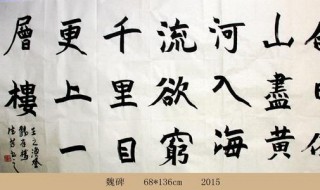 白日依
山盡黃
河入海
流欲窮
千里目
更上一
層樓
王之渙登
魏碑 68*136cm 2015